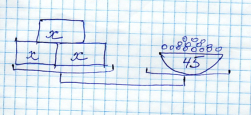 x
x x
45